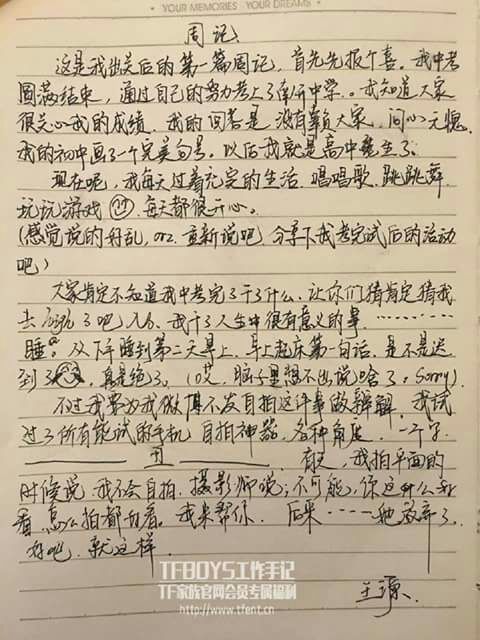 YOUR MEMORIES · YOUR DREAMS
周记
这是我出关后的第一篇周记，首先先报个喜。我中考
圆满结束，通过自己的努力考上了南开中学。我知道大家
很关心我的成绩，我的回答是 没有辜负大家，问心无愧
我的初中画了一个完美句号。以后我就是高中生了。
现在呢，我每天过着充实的生活 唱唱歌，跳跳舞
玩玩游戏 每天都很开心。
(感觉说的好乱，orz 重新说吧 分享下我考完试后的活动
吧)
大家肯定不知道我中考完了干了什么，让你们猜肯定猜我
去 玩了吧 我干了人生中很有意义的事…………
睡。从下午睡到第二天早上，早上起床第一句话，是不是迟
到了 真是绝了。(哎，脑子里想不出说啥了，Sorry)
不过我要为我微博不发自拍这件事做辩解 我试
过了所有能试的手机 自拍神器，各种角度，一个字
丑 有天，我拍平面的
时候说 我不会自拍，摄影师说，不可能，你这么好
看 怎么拍都好看。我来帮你，后来……她放弃了。
好吧，就这样
王源
TFBOYS工作手记
TF家族官网会员专属福利
http://www.tfent.cn